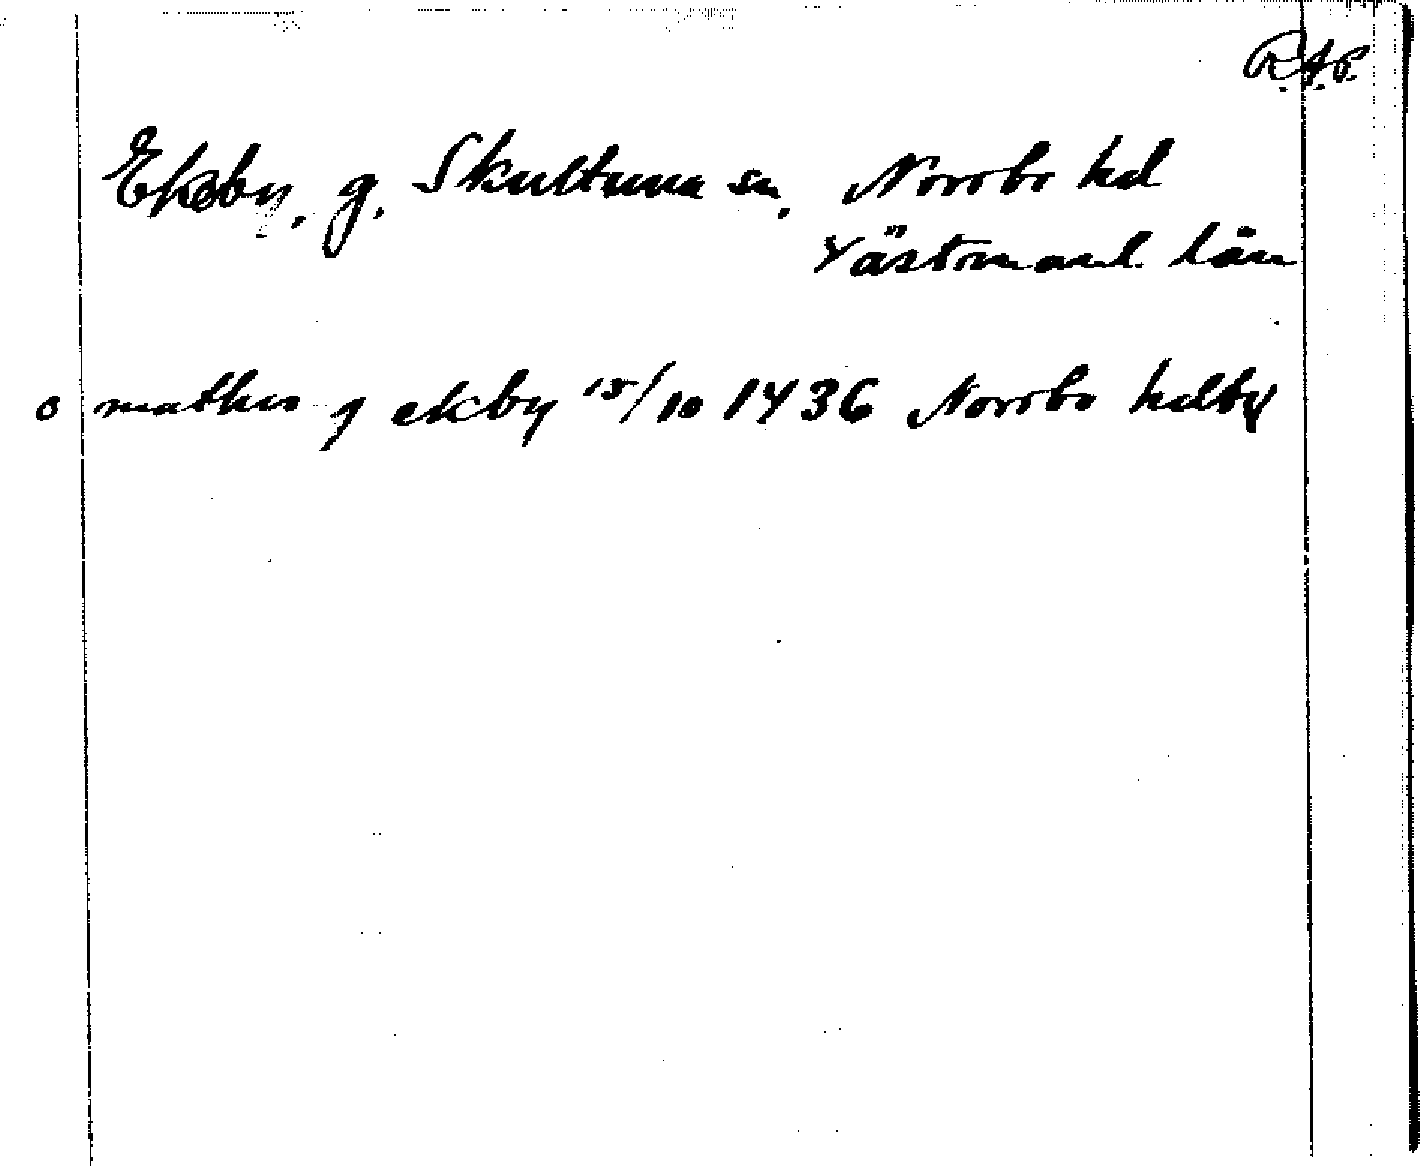 R.A.P.
Ekeby, g. Skultuna sn, Norrbo hd
Västmanl. län
o mathis j ekby 15/10 1436 Norrbo hd